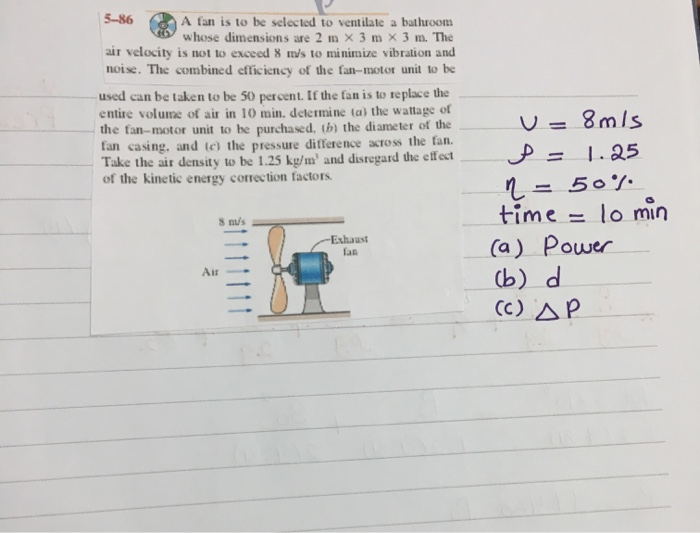 5–86 A fan is to be selected to ventilate a bathroom
whose dimensions are 2 m × 3 m × 3 m. The
air velocity is not to exceed 8 m/s to minimize vibration and
noise. The combined efficiency of the fan–motor unit to be
used can be taken to be 50 percent. If the fan is to replace the
entire volume of air in 10 min, determine (a) the wattage of
the fan–motor unit to be purchased, (b) the diameter of the
fan casing, and (c) the pressure difference across the fan.
Take the air density to be 1.25 kg/m³ and disregard the effect
of the kinetic energy correction factors.
8 m/s
Exhaust
fan
Air
v = 8m/s
ρ = 1.25
η = 50%.
time = 10 min
(a) Power
(b) d
(c) △P